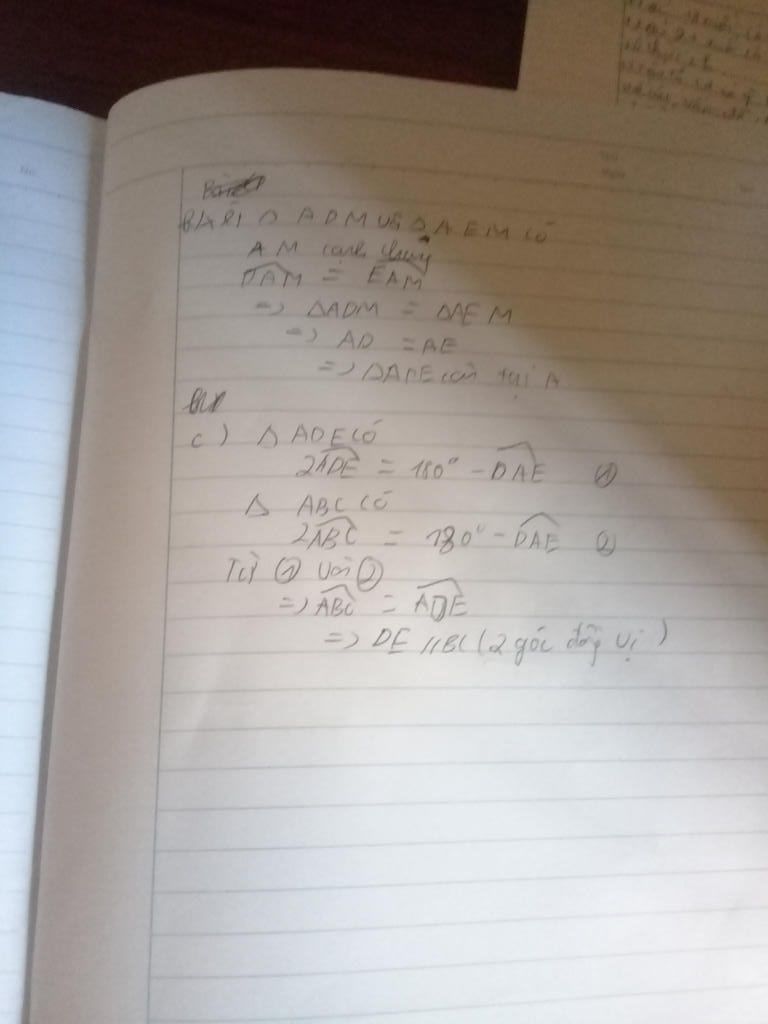 Δ ADM và Δ AEM có
AM cạnh chung
DAM = EAM
=> ΔADM = ΔAEM
=> AD = AE
=> ΔADE cân tại A
c) Δ ADE có
2ADE = 180° - DAE ①
Δ ABC có
2ABC = 180° - DAE ②
Từ ① và ②
=> ABC = ADE
=> DE // BC (2 góc đồng vị)